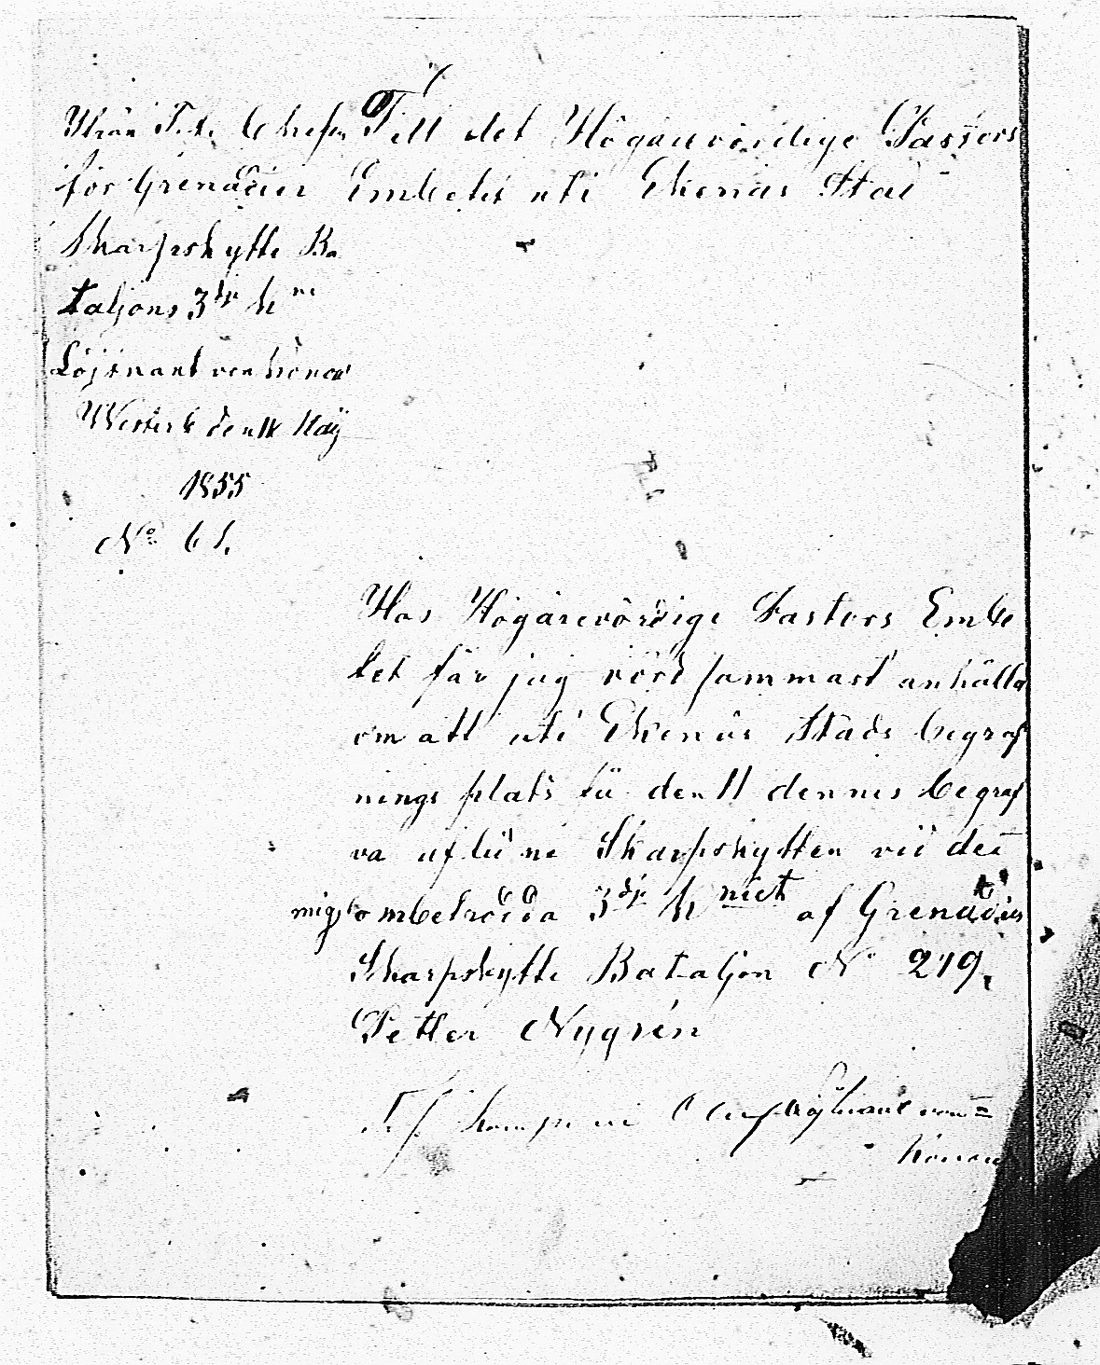 Ifrån T.f. Chefen
för Grenadier
Skarpskytte Ba
taljons 3dje kne
Löjtnant von Könow
Westerb den 11 Maÿ
1855
No 61.
Till det Högärevördige Pastors
Embetet uti Ekenäs Stad
Hos Högärevördige Pastors Embe
tet får jag vördsammast anhålla
om att uti Ekenäs Stads begraf
nings plats få den 11 dennes begraf
va aflidne Skarpskytten vid det
mig ombetrodda 3dje kniet af Grenadier
Skarpskytte Bataljon No 219,
Petter Nygrén
T.f. kompani Chef Löjtnant von
Könow